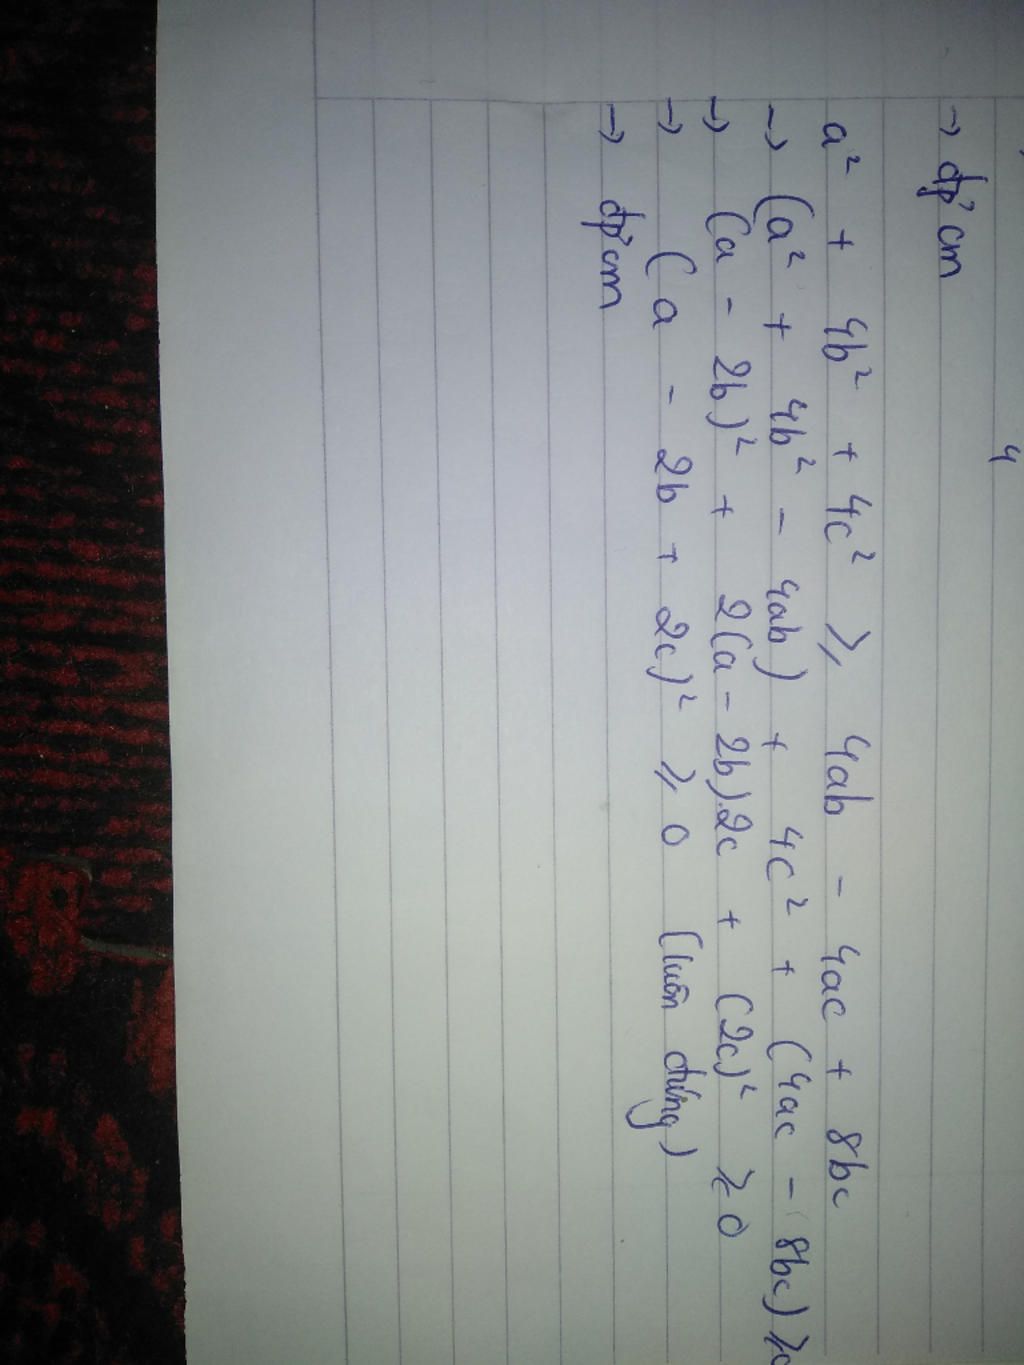 4
→ đpcm
a² + 4b² + 4c² ≥ 4ab - 4ac + 8bc
→ (a² + 4b² - 4ab) + 4c² + (4ac - 8bc) ≥0
→ (a - 2b)² + 2(a - 2b).2c + (2c)² ≥ 0
→ (a - 2b + 2c)² ≥ 0 (luôn đúng)
→ đpcm